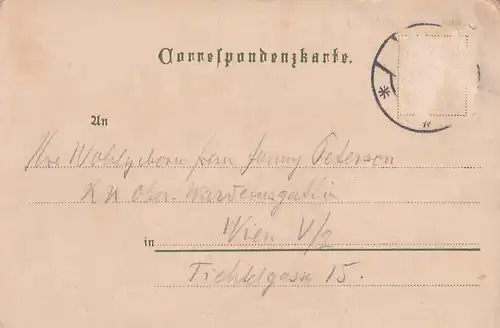 Correspondenzkarte.
An
Ihre Wohlgeborn Frau Jenny Peterson
K K Ober-Wardeinsgattin
in Wien V/2
Fichtelgasse 15.